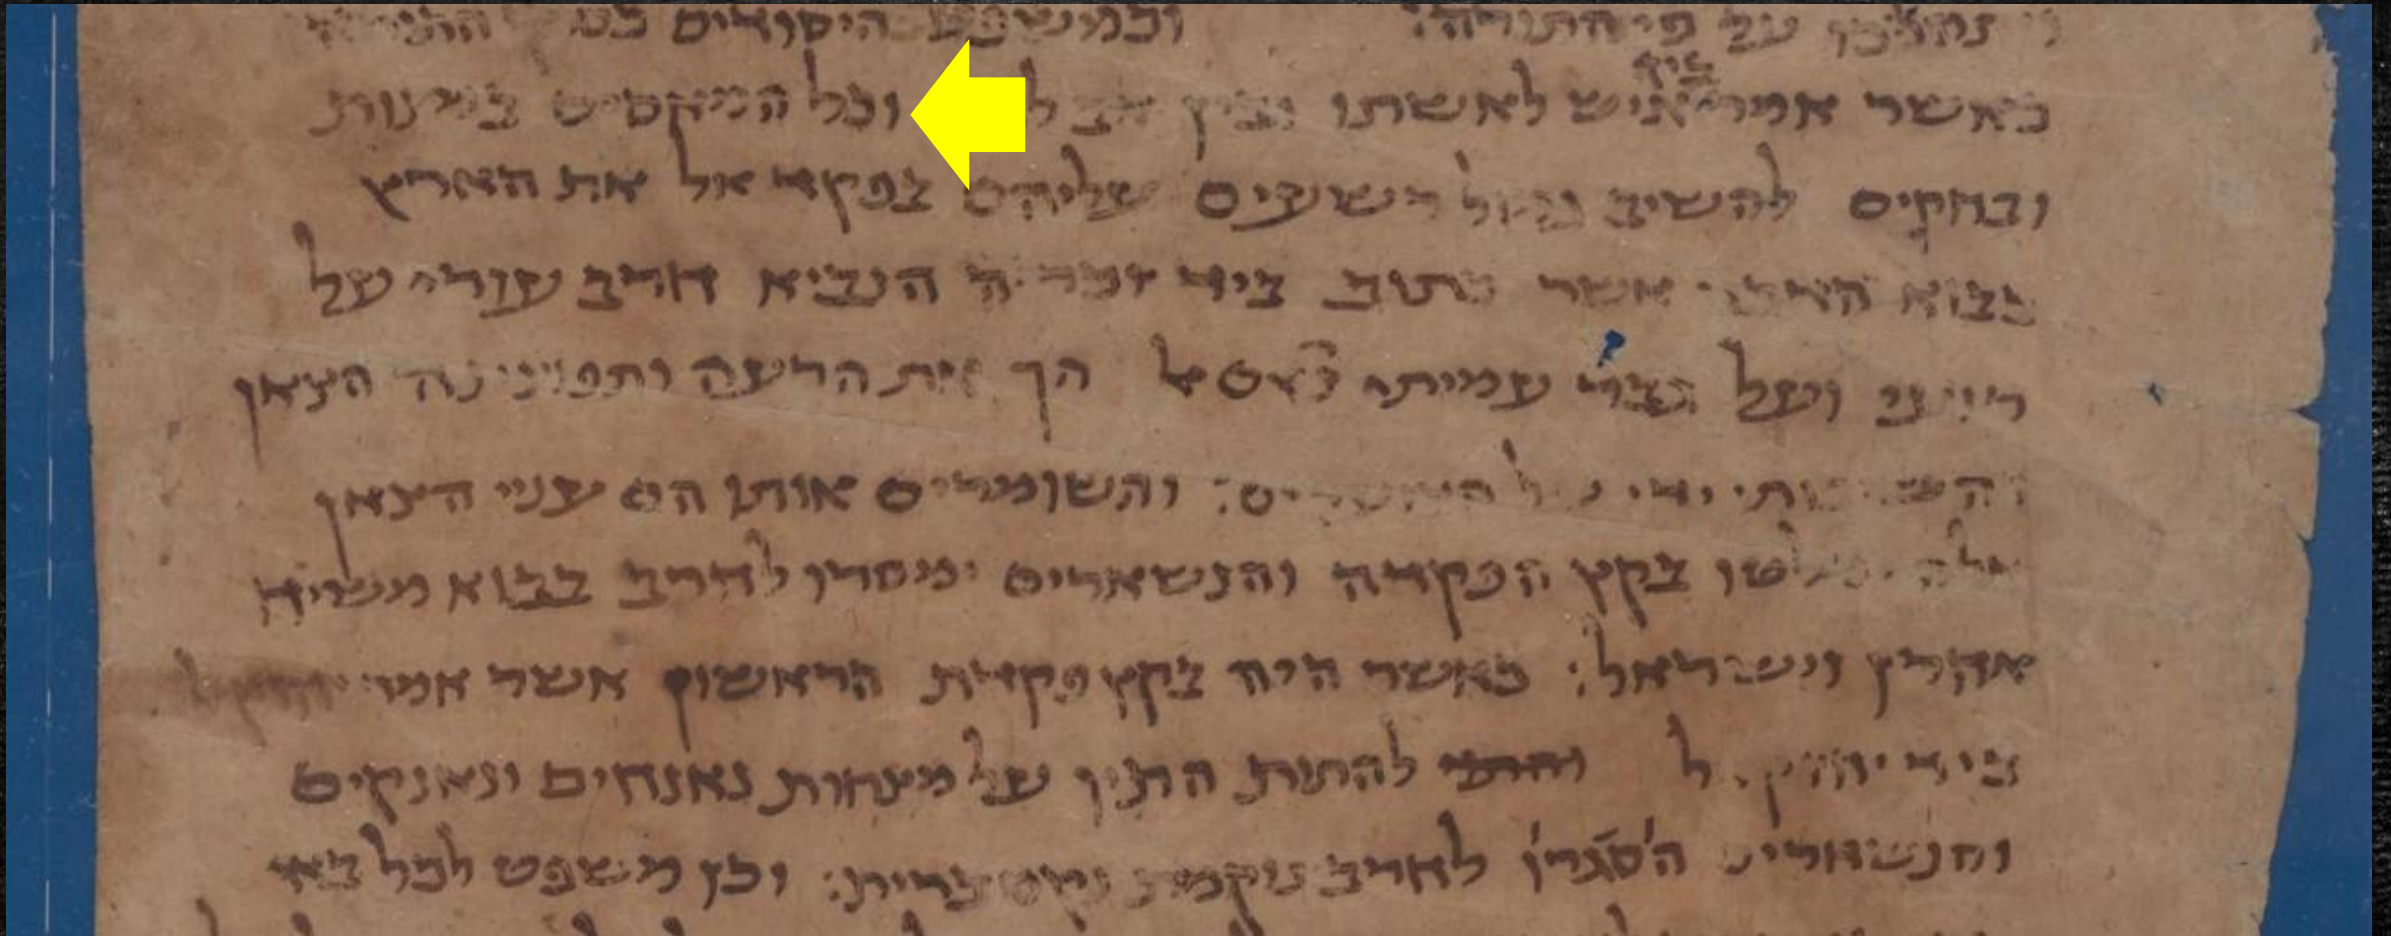 ויתהלכו על פי התורה: וכמשפט היסודים כסרך התורה
כאשר אמר בין איש לאשתו ובין אב ל וכל המאסים במצות
ובחקים להשיב גמול רשעים עליהם בפקד אל את הארץ
בבוא הדבר אשר כתוב ביד זכריה הנביא חרב עורי על
רועי ועל גבר עמיתי נאם אל הך את הרעה ותפוצינה הצאן
והשיבותי ידי על הצוערים: והשומרים אותו הם עניי הצאן
אלה ימלטו בקץ הפקדה והנשארים ימסרו לחרב בבוא משיח
אהרן וישראל: כאשר היה בקץ פקדת הראשון אשר אמר יחזקאל
ביד יחזקאל להתות התיו על מצחות נאנחים ונאנקים
והנשארים הסגרו לחרב נוקמת נקם ברית: וכן משפט לכל באי